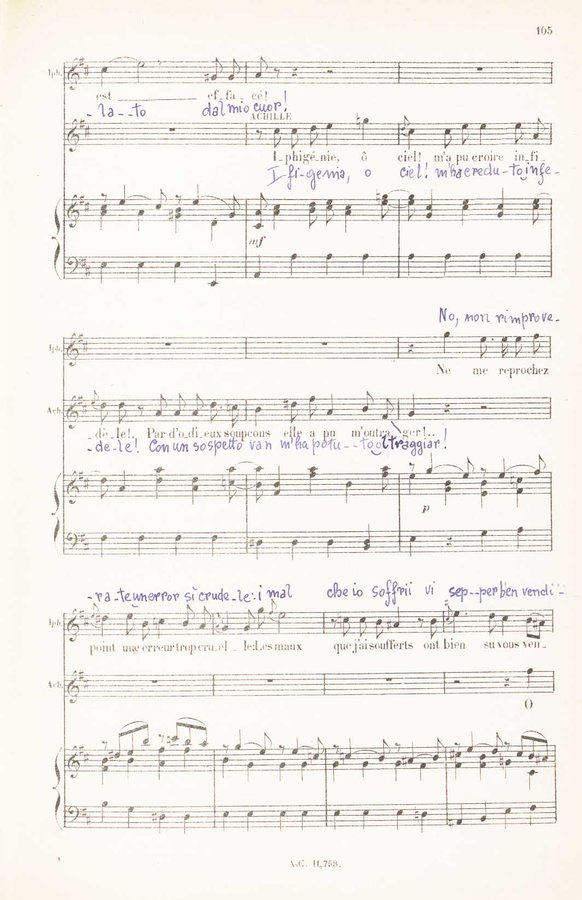 105
Iph.
est ef_fa_cé!
- la--to dal mio cuor!
ACHILLE
I_phigénie, ô ciel! m'a pu croire in_fi_
I_fi-genia, o ciel! m'ha credu-to infe-
mf
No, non rimprove_
Iph.
Ne me reprochez
Ach.
_dèle!. Par d'o_di_eux soupçons elle a pu m'outra_ger!..
-de-le! Con un sospetto van m'ha potu--to oltraggiar!
p
-ra-te un error sì crude-le: i mal che io soffrii vi sep--per ben vendi-
Iph.
point une erreur trop cru_el_le: Les maux que j'ai soufferts ont bien su vous ven_
Ach.
O
A.C. 11,758.